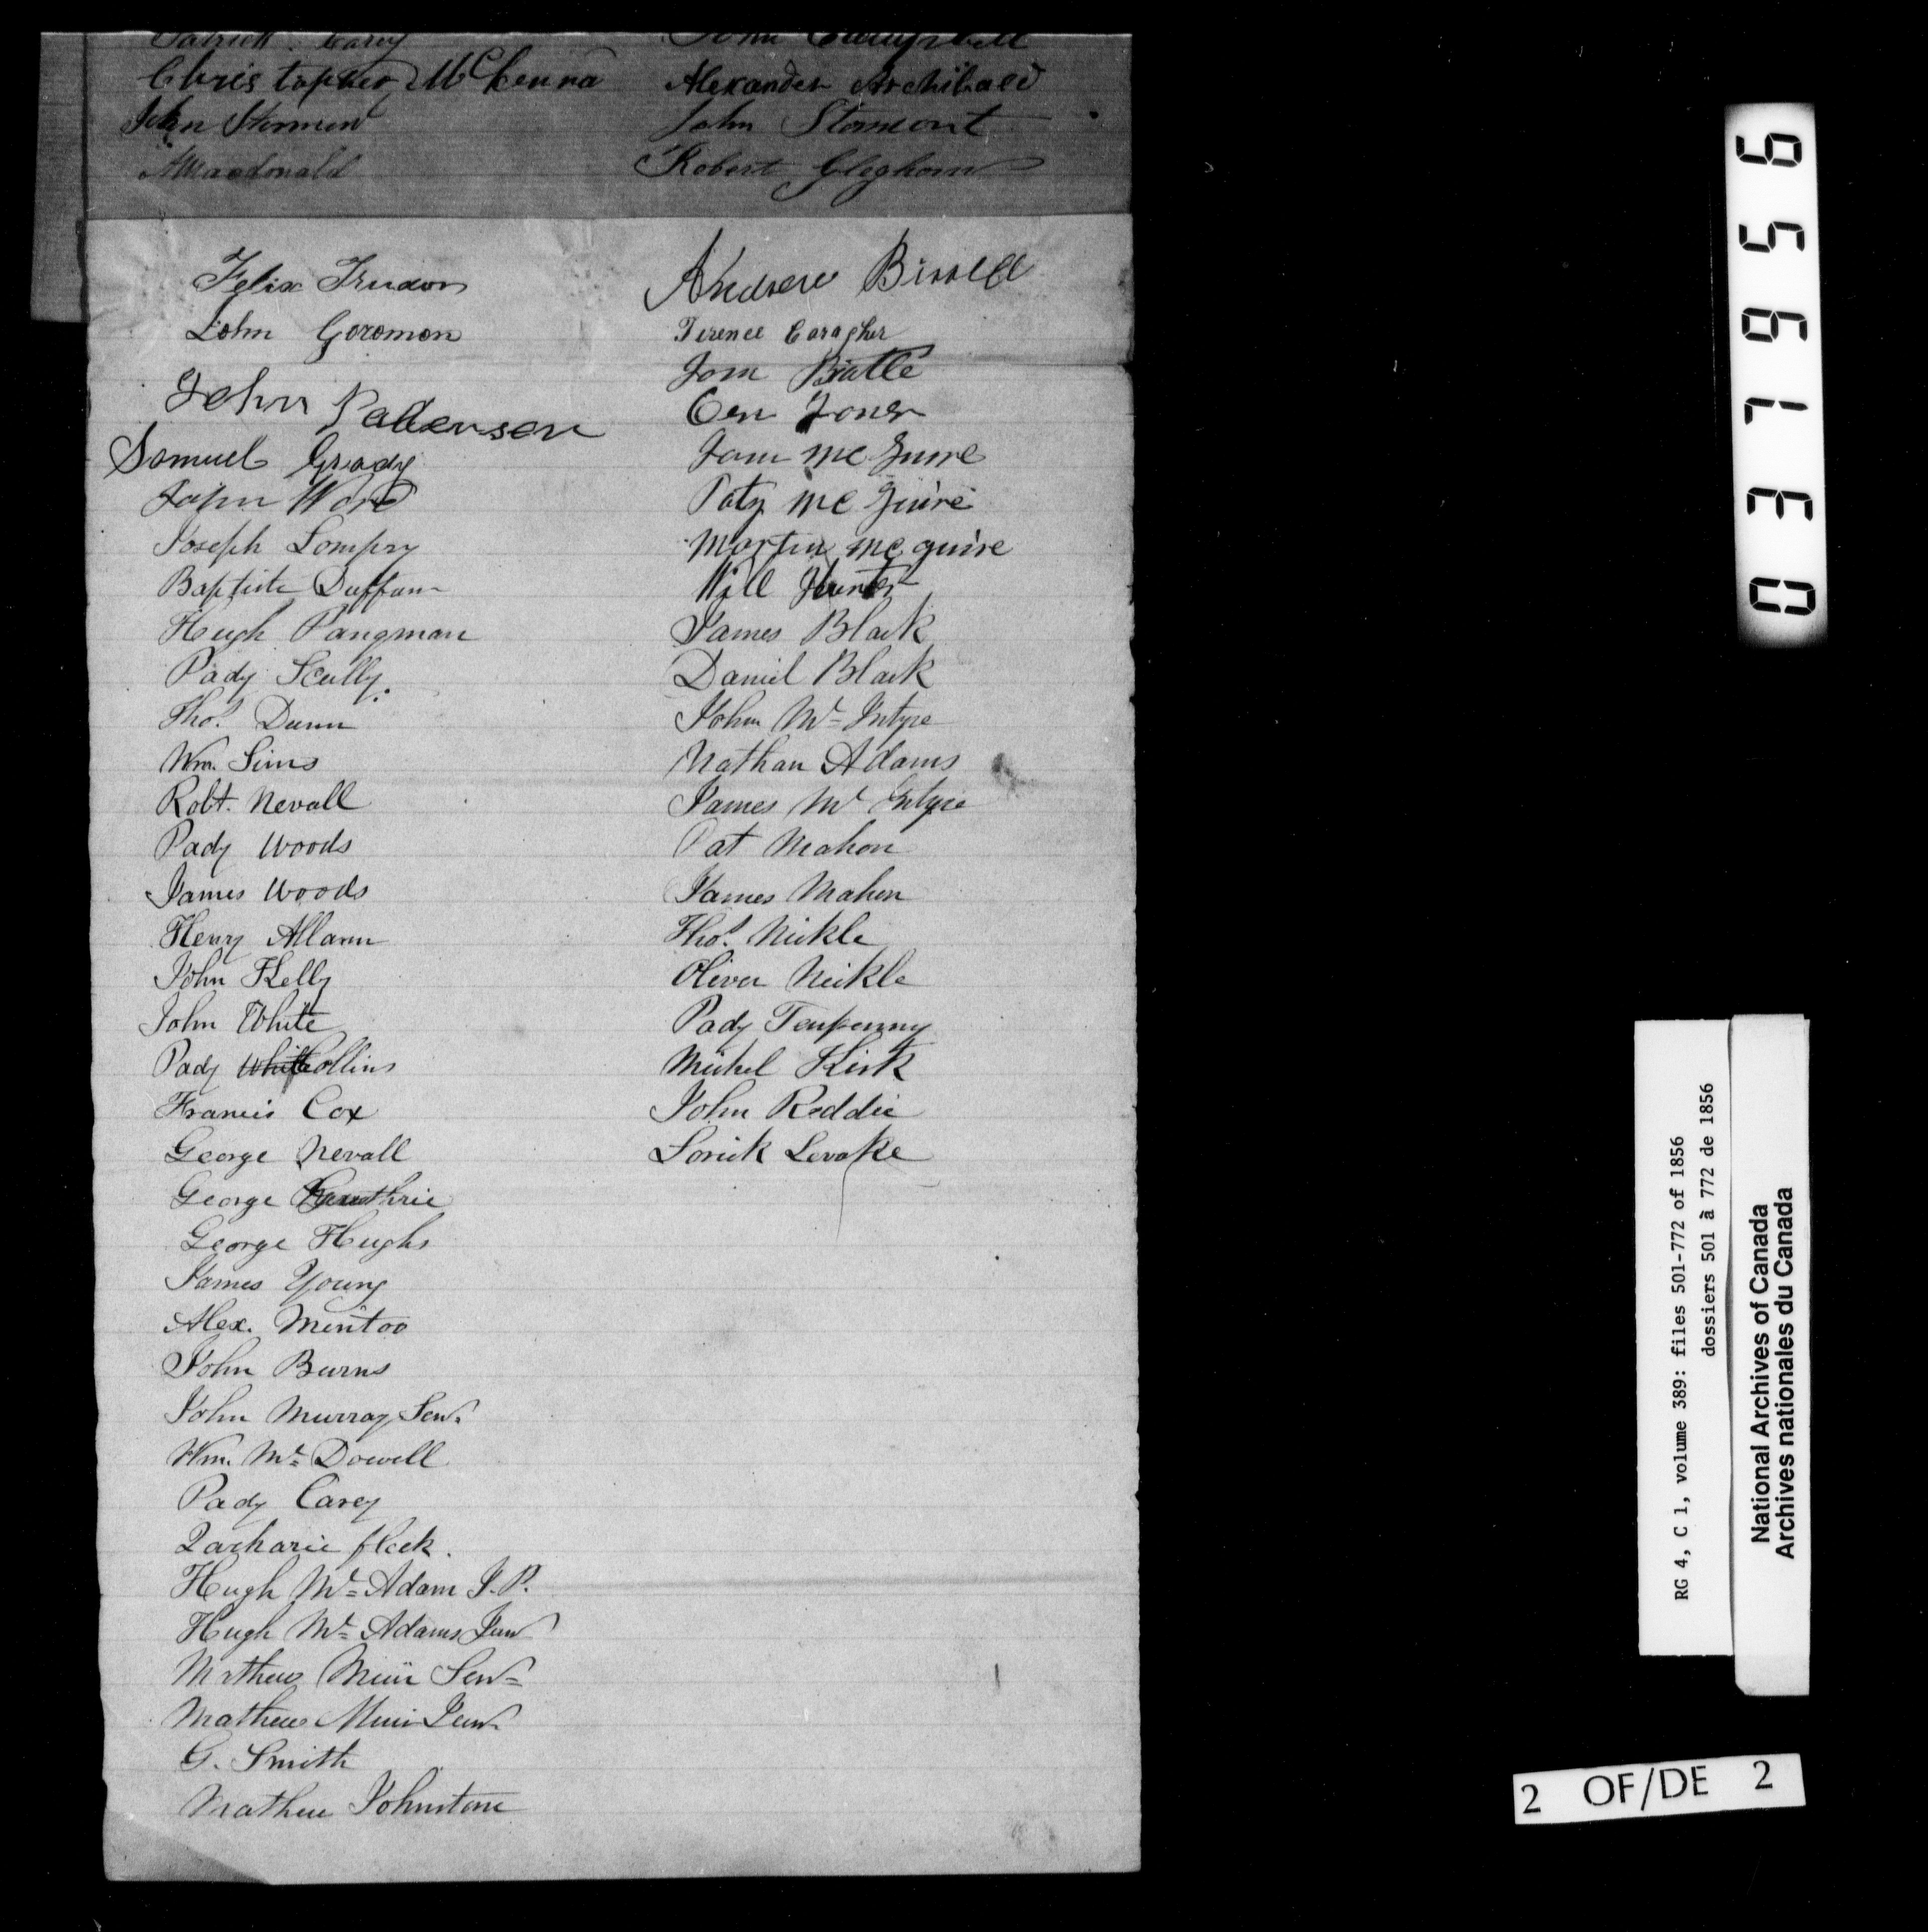 Patrick Carey
Christopher McKenna
John Stormon
AMacdonald
John Campbell
Alexander Archibald
John Stomeont
Robert Gleghorn
Felix Trudon
John Goromon
John Pattenson
Samuel Grady
John Ward
Joseph Lompry
Baptiste Duffan
Hugh Pangman
Pady Scully.
Thos. Dunn
Wm. Sims
Robt. Nevall
Pady Woods
James Woods
Henry Allann
John Kelly
John White
Pady White Collins
Francis Cox
George Nevall
George Guthrie
George Hughs
James Young
Alex. Mintoo
John Burns
John Murray Sen.
Wm. Mc Dowell
Pady Carey
Zacharie fleck.
Hugh Mc Adam J. P.
Hugh Mc Adams Jun
Mathew Muir Sen
Mathew Muir Jun.
G. Smith
Mathew Johnstone
Andrew Bissell
Terence Caragher
Jom Biatle
Cen Joner
Jam mc Guire
Paty mc Guire
Martin mc guire
Will Hunter
James Black
Daniel Black
John Mc Intyre
Nathan Adams
James Mc Intyre
Pat Mahon
James Mahon
Thos. Nickle
Oliver Nickle
Pady Tenpenny
Michel Kirk
John Reddie
Lorick Levake
031956
RG 4, C 1, volume 389: files 501-772 of 1856
dossiers 501 à 772 de 1856
National Archives of Canada
Archives nationales du Canada
2 OF/DE 2